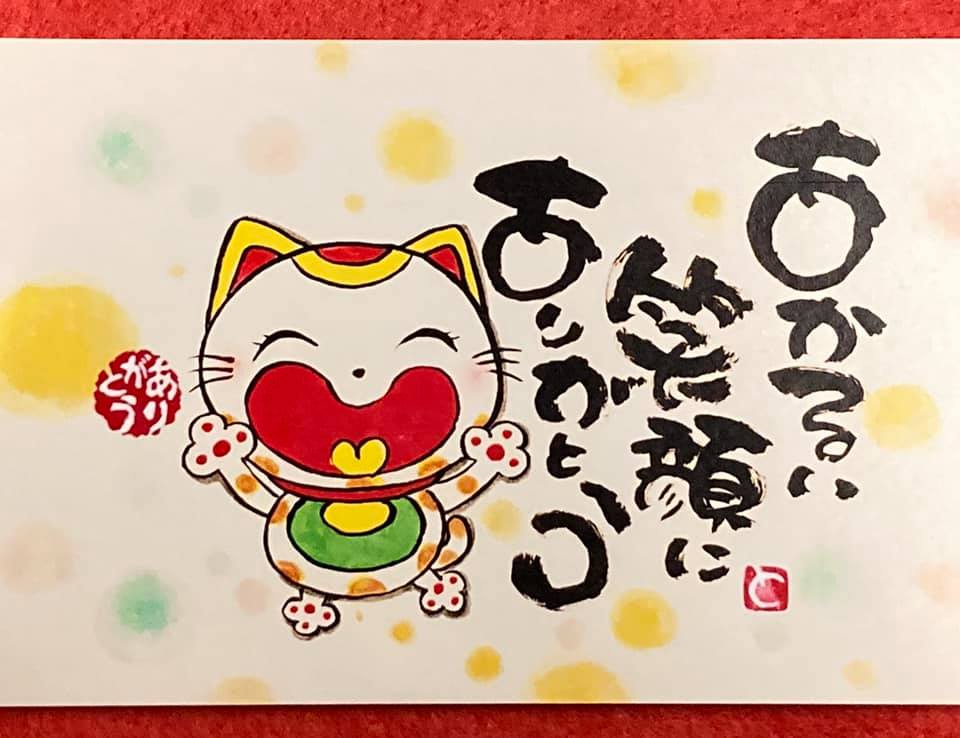 あかるい
笑顔に
ありがとう
と
あり
がとう